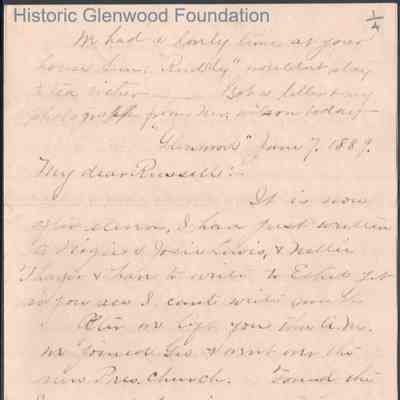 Historic Glenwood Foundation
1/4
We had a lovely time at your
house "Ruddy" wouldn't stay
to tea either
photograph from Mr. Wilson today—
"Glenwood" June 7. 1889.
My dear Russell:—
It is now
after eleven, I have just written
to & Josie Lewis, & Nellie
Thayer & have to write to Estes yet
so you see I can't write much
After we left you this A.M.
we joined Geo & went over the
new Pres. Church. Found the